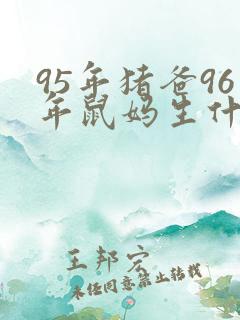 95年猪爸96
年鼠妈生什
王邦宏
未经同意禁止转载